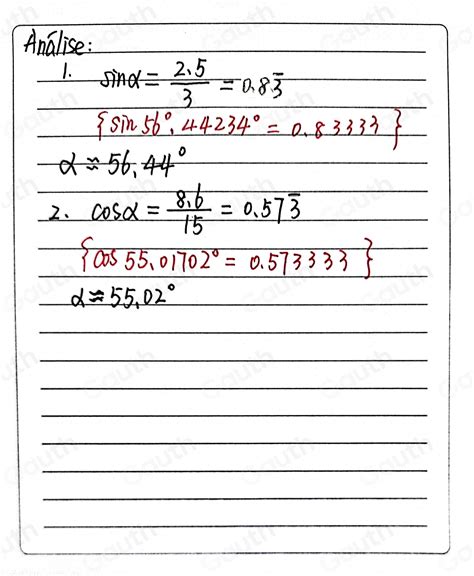 Análise:
1. sinα = 2.5/3 = 0.83̅
{sin 56°.44234° = 0.83333}
α ≈ 56.44°
2. cosα = 8.6/15 = 0.573̅
{cos 55.01702° = 0.573333}
α ≈ 55.02°